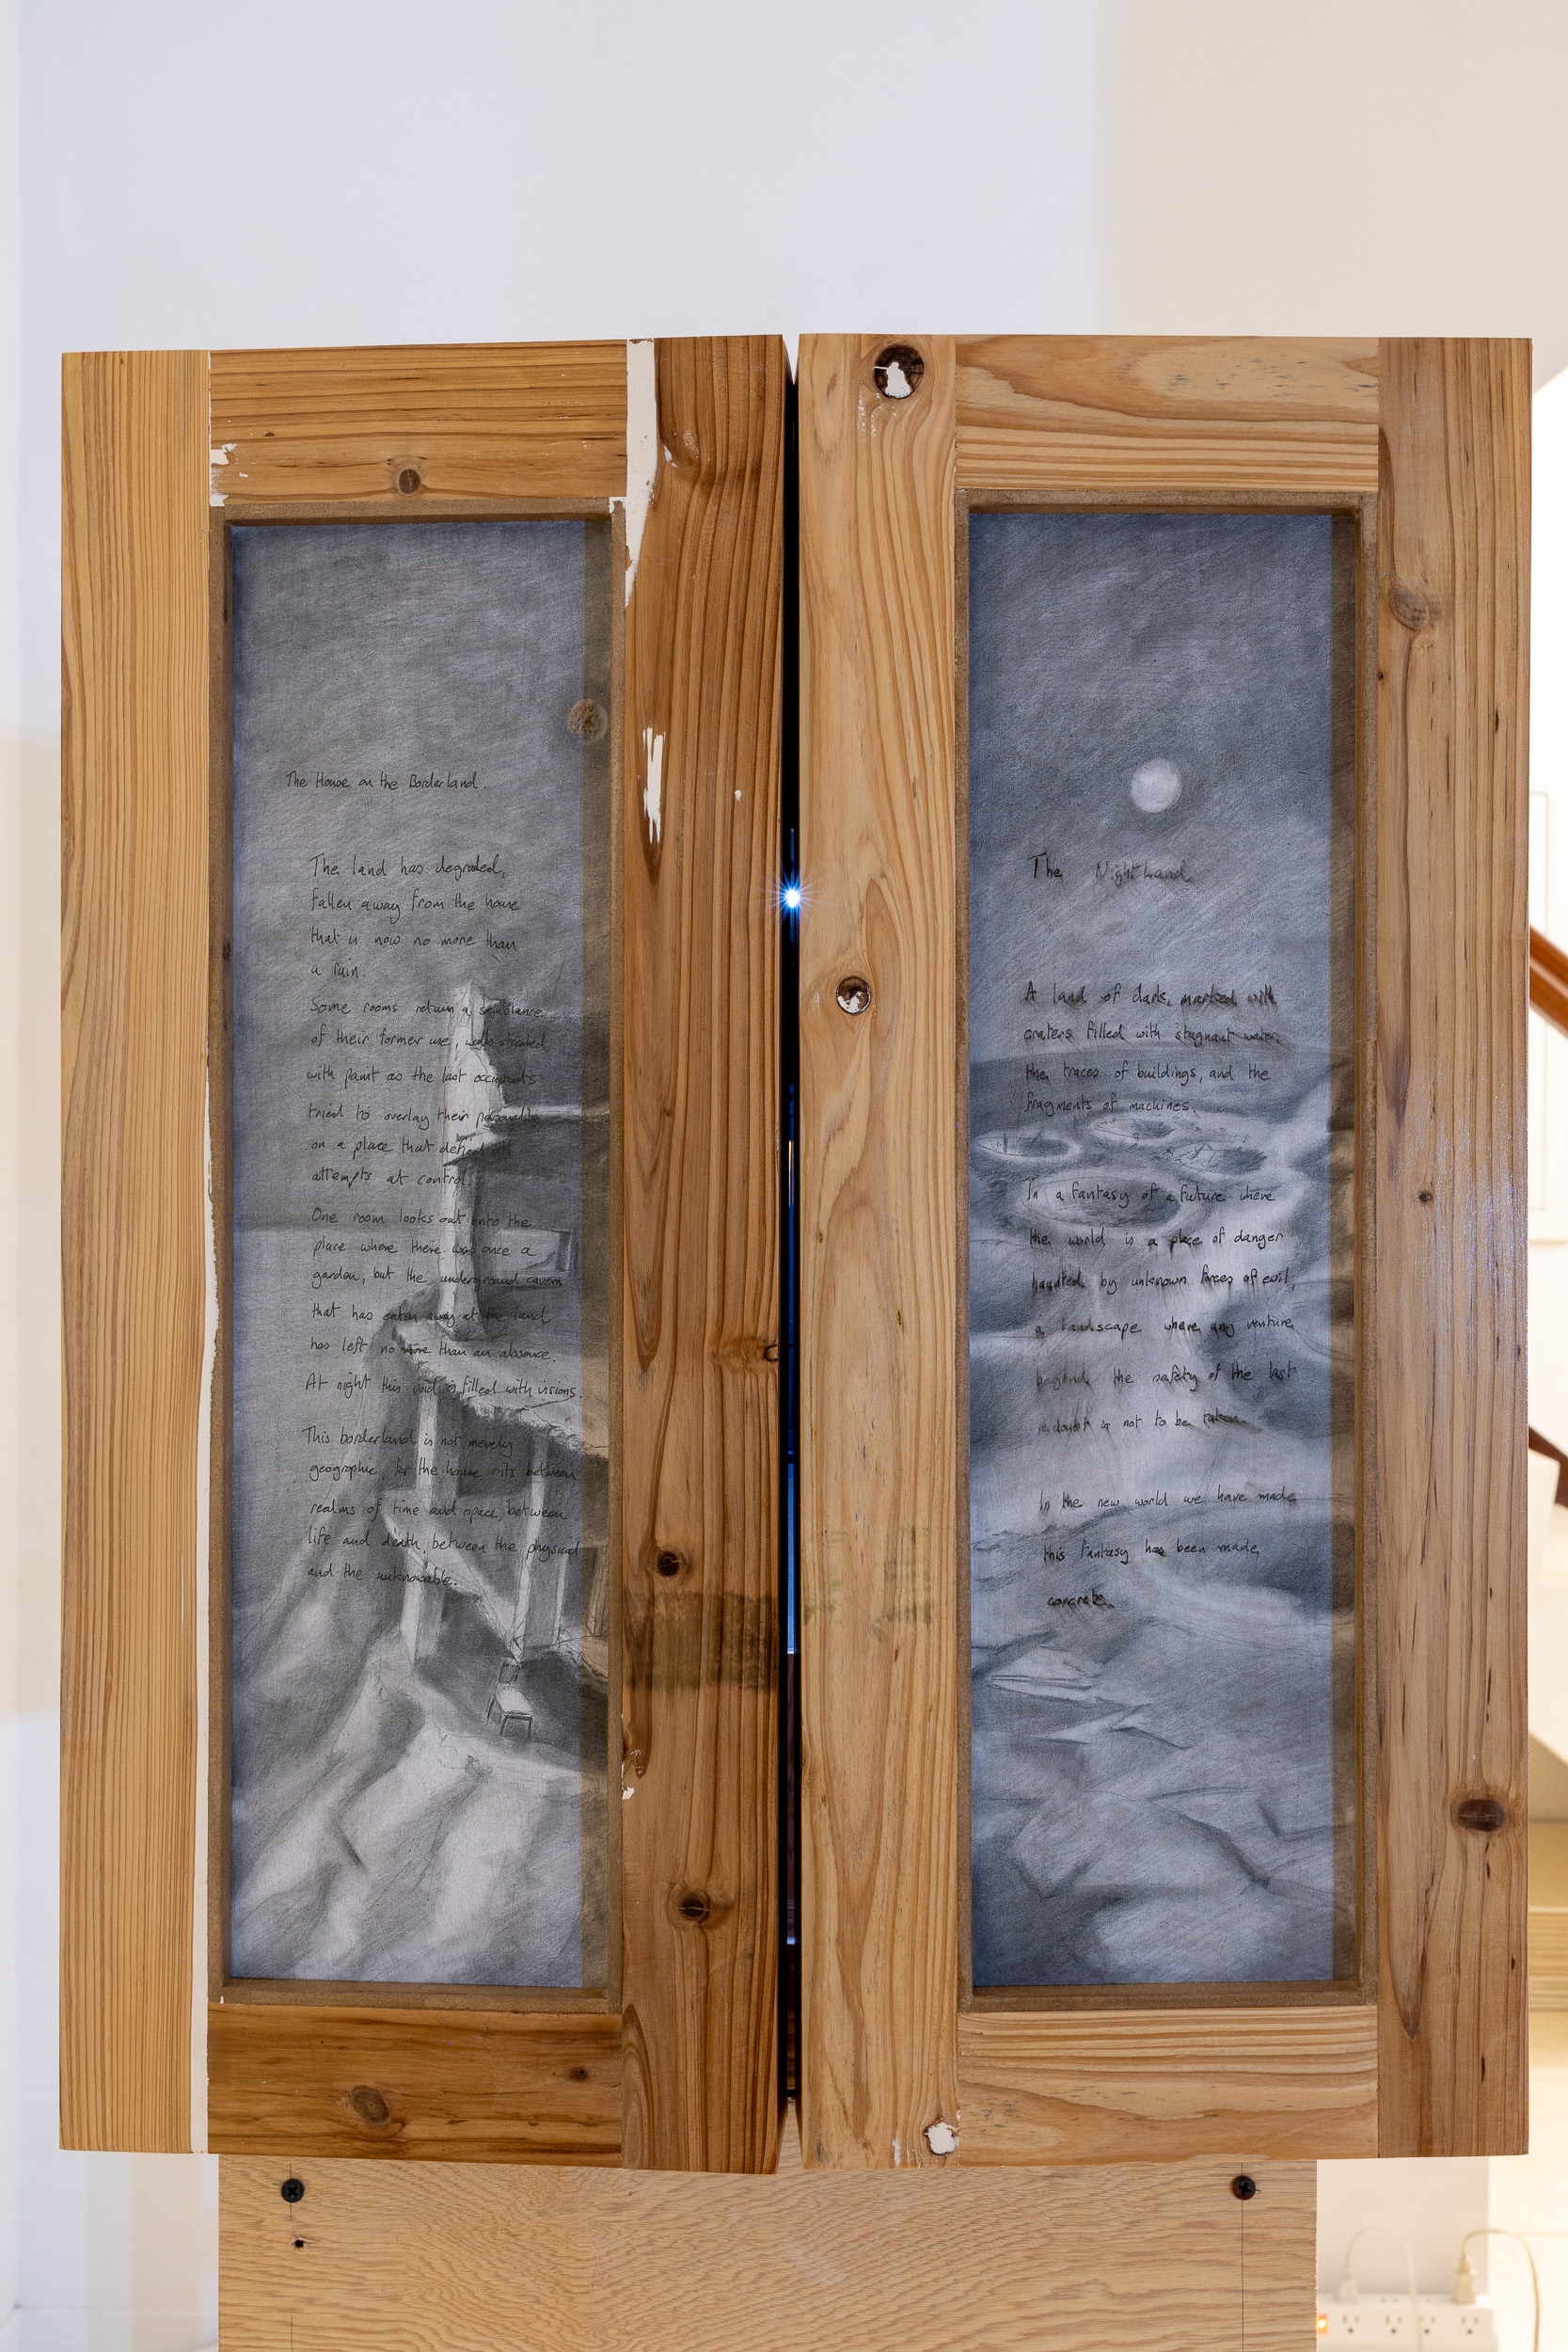 The House on the Borderland.
The land has degraded,
fallen away from the house
that is now no more than
a ruin.
Some rooms retain a semblance
of their former use, walls streaked
with paint as the last occupants
tried to overlay their personality
on a place that defied all
attempts at control.
One room looks out onto the
place where there was once a
garden, but the underground cavern
that has eaten away at the land
has left no more than an absence.
At night this void is filled with visions.
This borderland is not merely
geographic, for the house sits between
realms of time and space, between
life and death, between the physical
and the unknowable.
The Night Land.
A land of dark, marked with
craters filled with stagnant water,
the traces of buildings, and the
fragments of machines.
In a fantasy of a future where
the world is a place of danger
haunted by unknown forces of evil,
a landscape where any venture
beyond the safety of the last
redoubt is not to be taken.
In the new world we have made
this fantasy has been made
concrete.